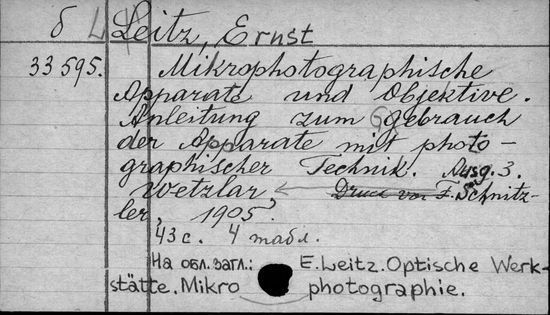 б L Leitz, Ernst
33595. Mikrophotographische
Apparate und Objektive.
Anleitung zum Gebrauch
der Apparate mit photo-
graphischer Technik. Ausg. 3.
Wetzlar Druck von F. Schnitz-
ler, 1905.
43 с. 4 табл.
На обл. загл.: E. Leitz. Optische Werk-
stätte. Mikrophotographie.